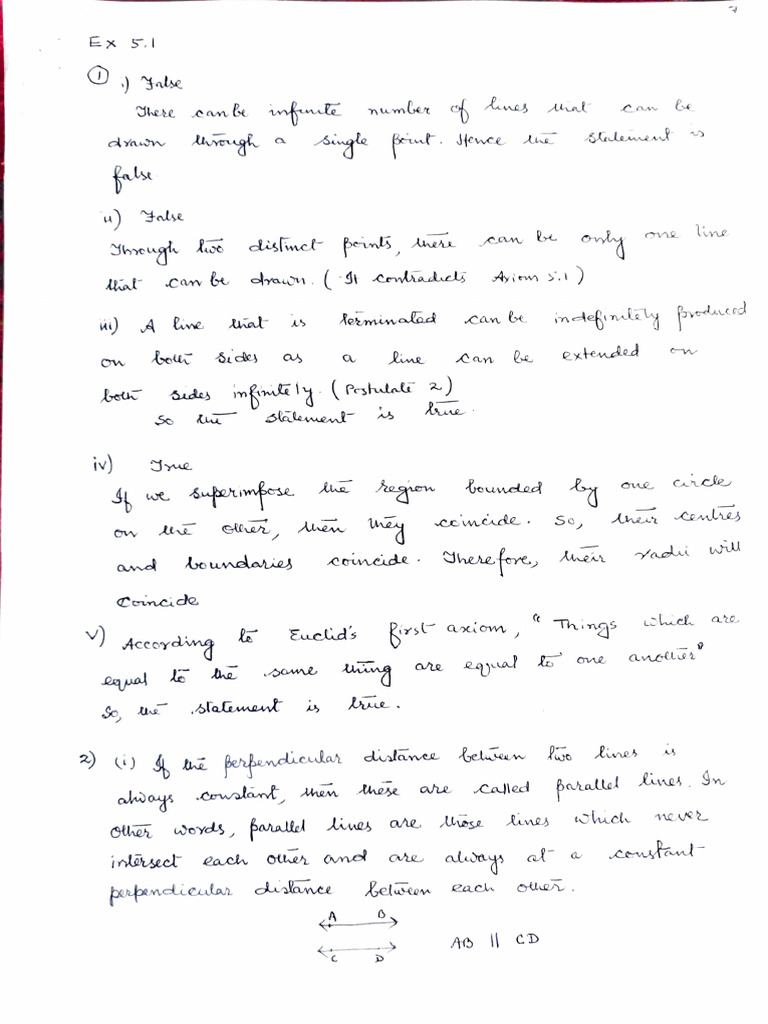 7
Ex 5.1
① i) False
There can be infinite number of lines that can be
drawn through a single point. Hence the statement is
false.
ii) False
Through two distinct points, there can be only one line
that can be drawn. (It contradicts Axiom 5.1)
iii) A line that is terminated can be indefinitely produced
on both sides as a line can be extended on
both sides infinitely. (Postulate 2)
So the statement is true.
iv) True
If we superimpose the region bounded by one circle
on the other, then they coincide. So, their centres
and boundaries coincide. Therefore, their radii will
Coincide
v) According to Euclid's first axiom, "Things which are
equal to the same thing are equal to one another"
So, the statement is true.
2) (i) If the perpendicular distance between two lines is
always constant, then these are called parallel lines. In
other words, parallel lines are those lines which never
intersect each other and are always at a constant
perpendicular distance between each other.
A B
C D
AB || CD